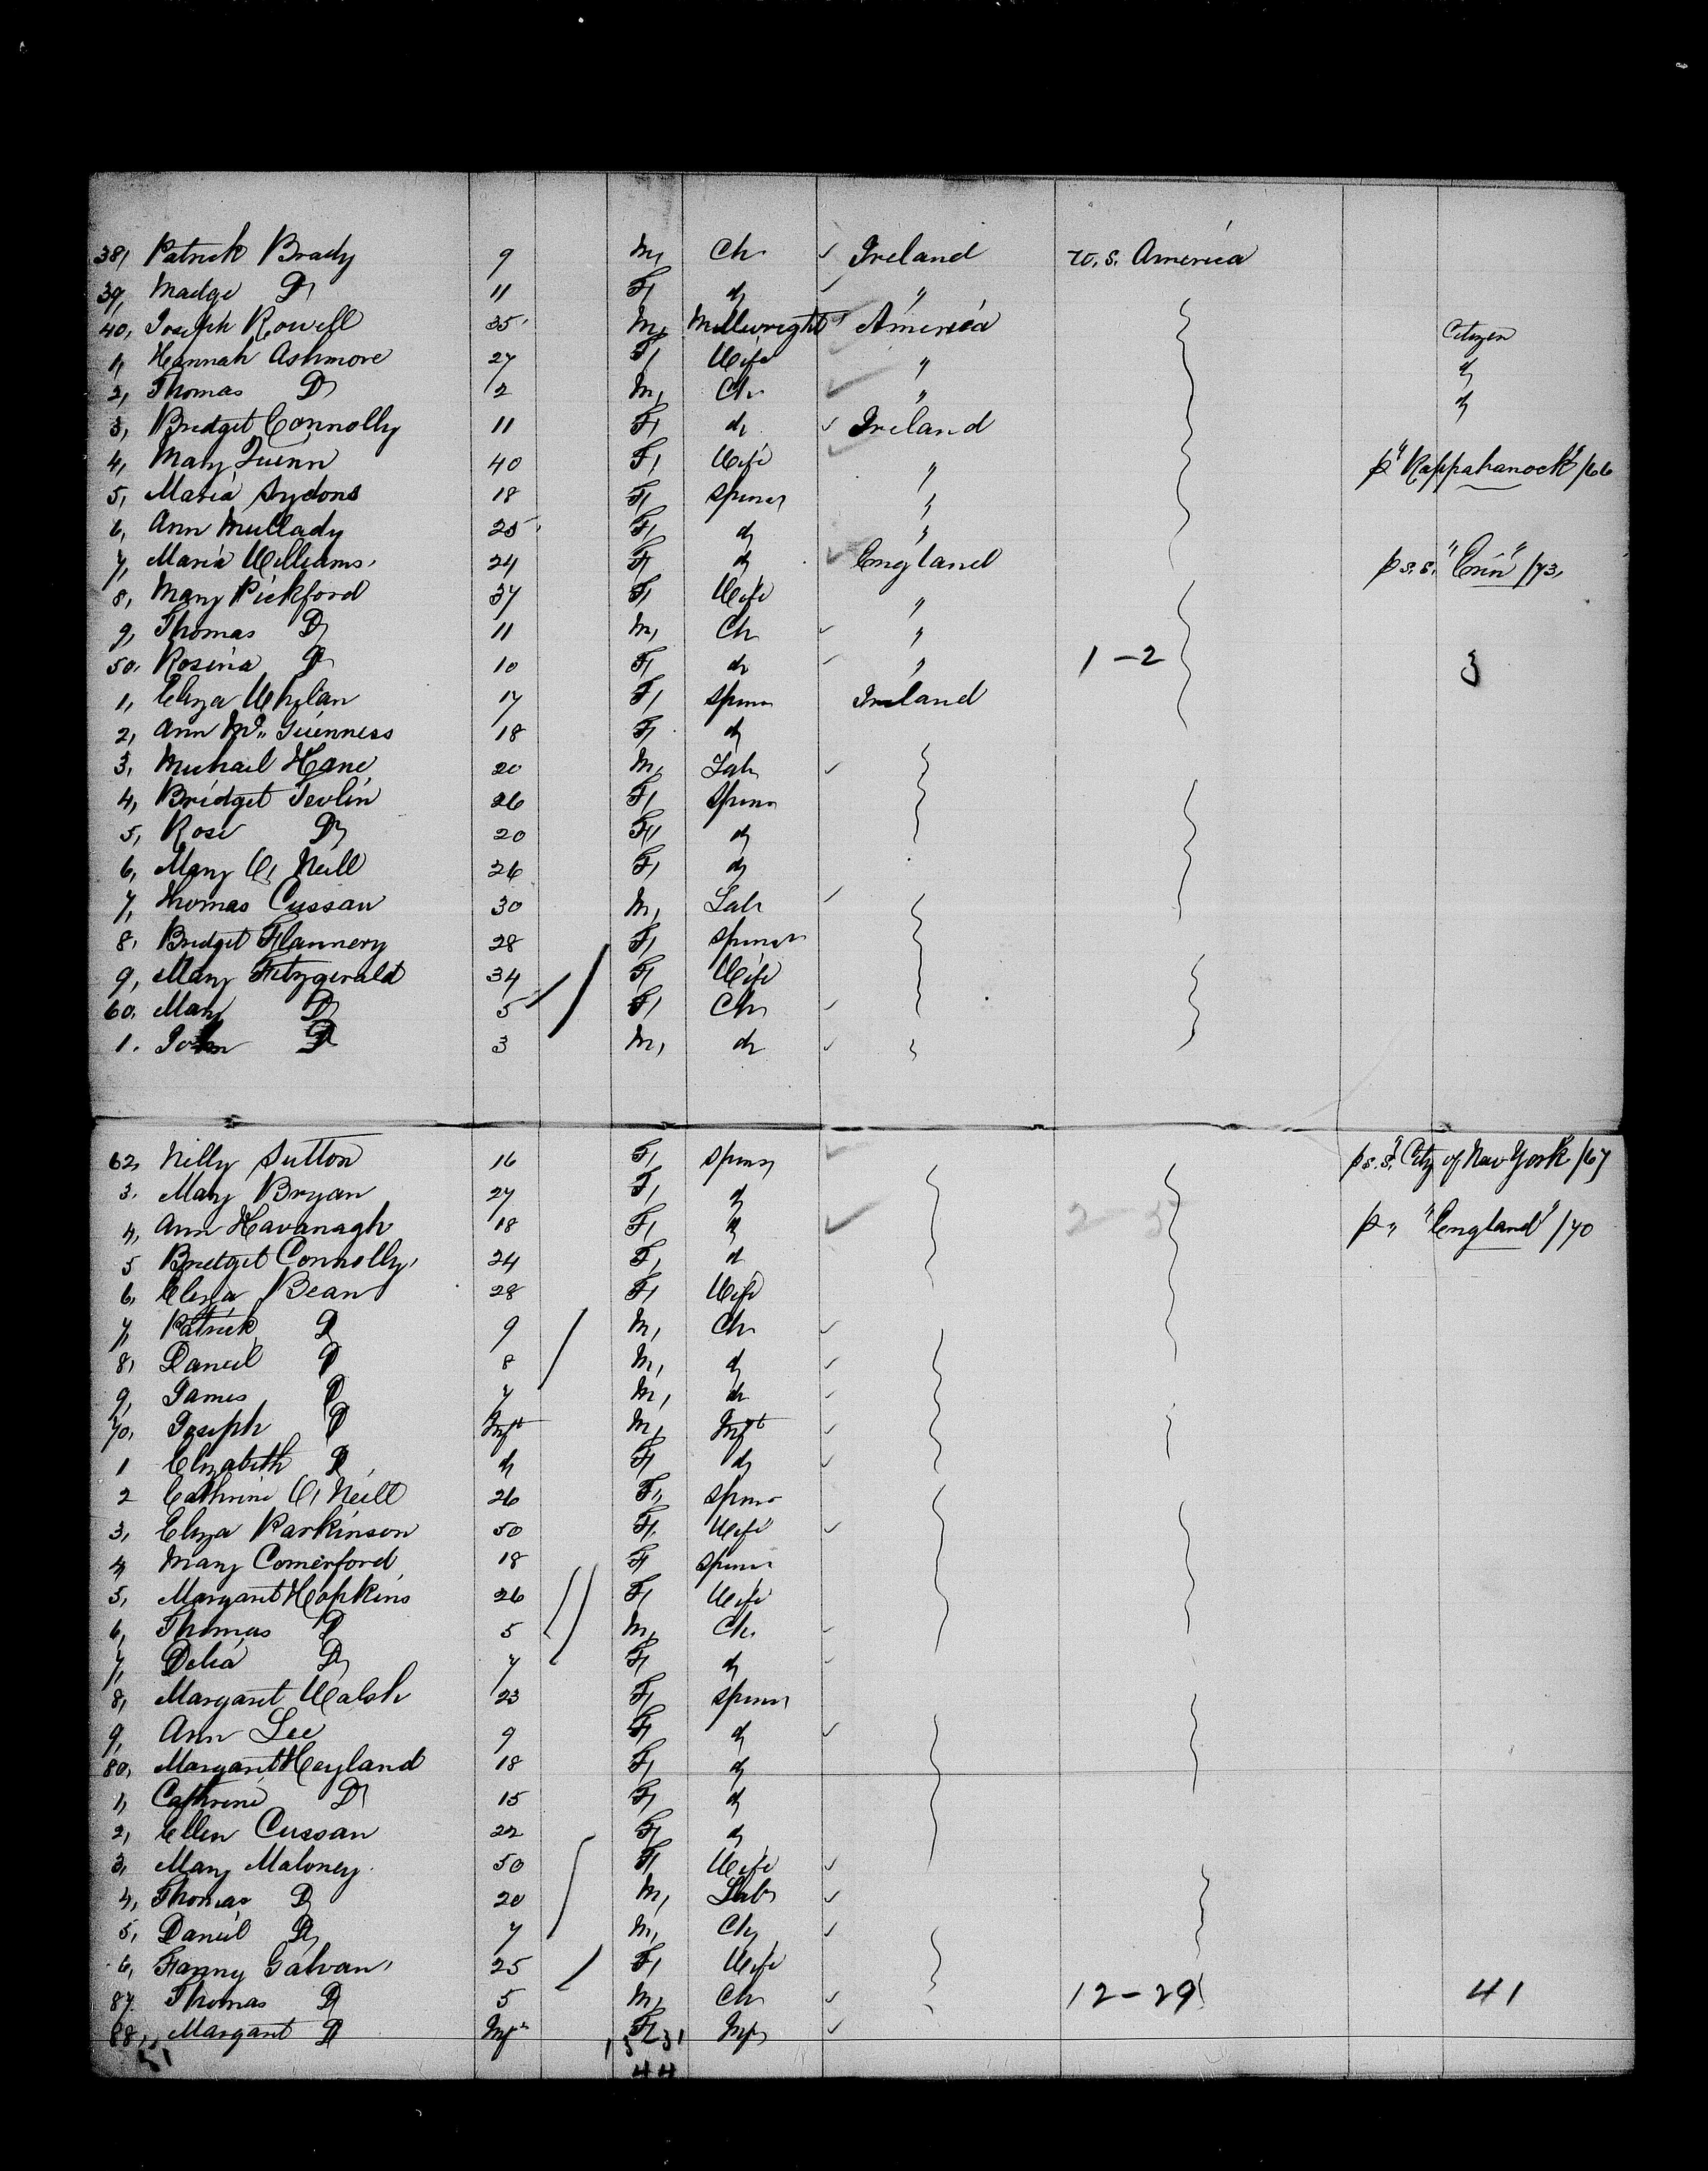 38, Patrick Brady 9 M, Ch Ireland U. S. America
39, Madge Do 11 F, do "
40, Joseph Rowell 35 M, Millwright America Citizen
1, Hannah Ashmore 27 F, Wife " do
2, Thomas Do 2 M, Ch " do
3, Bridget Connolly 11 F, do Ireland
4, Mary Quinn 40 F, Wife " p "Rappahanock" /66
5, Maria Sydons 18 F, Spinsr "
6, Ann Mullady 25 F, do "
7, Maria Williams 24 F, do England p s.s. "Erin" /73,
8, Mary Pickford 37 F, Wife "
9, Thomas Do 11 M, Ch "
50, Rosina Do 10 F, do " 1-2 3
1, Eliza Whylan 17 F, Spinsr Ireland
2, Ann Mc Guinness 18 F, do
3, Michail Kane 20 M, Lab
4, Bridget Tevlin 26 F, Spinsr
5, Rose Do 20 F, do
6, Mary O, Neill 26 F, do
7, Thomas Cussan 30 M, Lab
8, Bridget Flannery 28 F, Spinsr
9, Mary Fitzgerald 34 F, Wife
60, Mary Do 5 F, Ch
1. John Do 3 M, do
62, Nilly Sutton 16 F, Spinsr p s.s. "City of New York" /67
3. Mary Bryan 27 F, do
4, Ann Kavanagh 18 F, do 2-3 p " "England" /70
5 Bridget Connolly, 24 F, do
6, Eliza Bean 28 F, Wife
7, Patrick Do 9 M, Ch
8, Daniel Do 8 M, do
9, James Do 7 M, do
70, Joseph Do Inft M, Inft
1 Elizabeth Do do F, do
2 Cathrine O, Neill 26 F, Spinsr
3, Eliza Parkinson 50 F, Wife
4, Mary Comerford 18 F Spinsr
5, Margaret Hopkins 26 F, Wife
6, Thomas Do 5 M, Ch.
7, Delia Do 7 F, do
8, Margaret Walsh 23 F, Spinsr
9, Ann Lee 9 F, do
80, Margaret Heyland 18 F, do
1, Cathrine Do 15 F, do
2, Ellen Cussan 22 F, do
3, Mary Maloney 50 F, Wife
4, Thomas Do 20 M, Lab
5, Daniel Do 7 M, Ch
6, Fanny Galvan 25 F, Wife
87 Thomas Do 5 M, Ch 12-29 41
88, Margaret Do Inft F, Inft
51
44